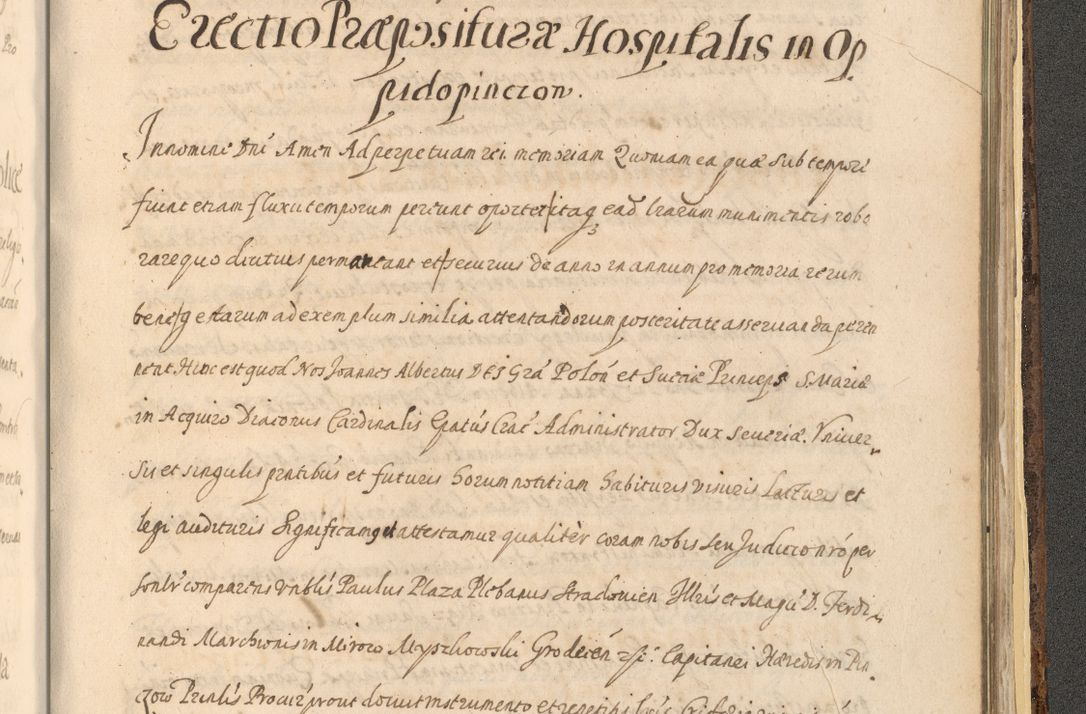 Erectio Præpositturæ Hospitalis in Op
pido pinczon.
In nomine Dnĩ Amen Ad perpetuam rei memoriam Quoniam ea quæ sub tempore
fiunt etiam fluxu temporum pereunt oportet itaq ead lrarum munimentis robo
rare quo diutius permaneant et securius de anno in annum pro memoria rerum
bene gestarum ad exemplum similia attentandorum posteritate asseruanda peren
nent. Hinc est quod Nos Joannes Albertus DEI Grá Polón et Sueciæ Princeps S. Mariæ
in Acquiro Diaconus Cardinalis Epatús Crac Administrator Dux Seueriæ. Vniuer
sis et singulis pntibús et futuris horum notitiam habituris visuris Lecturis et
legi audituris Significamq et attestamur qualitèr coram nobis seu Judicio nró per
sonlr comparens Vnblis Paulus Plaza Plebanus Stradouien Illris et Magci D. Ferdi
nandi Marchionis in Mirow Myszkowski Grodecén Capitanei Hæredis in Pin
czow Prinlis Procúr prout docuit instrumento et